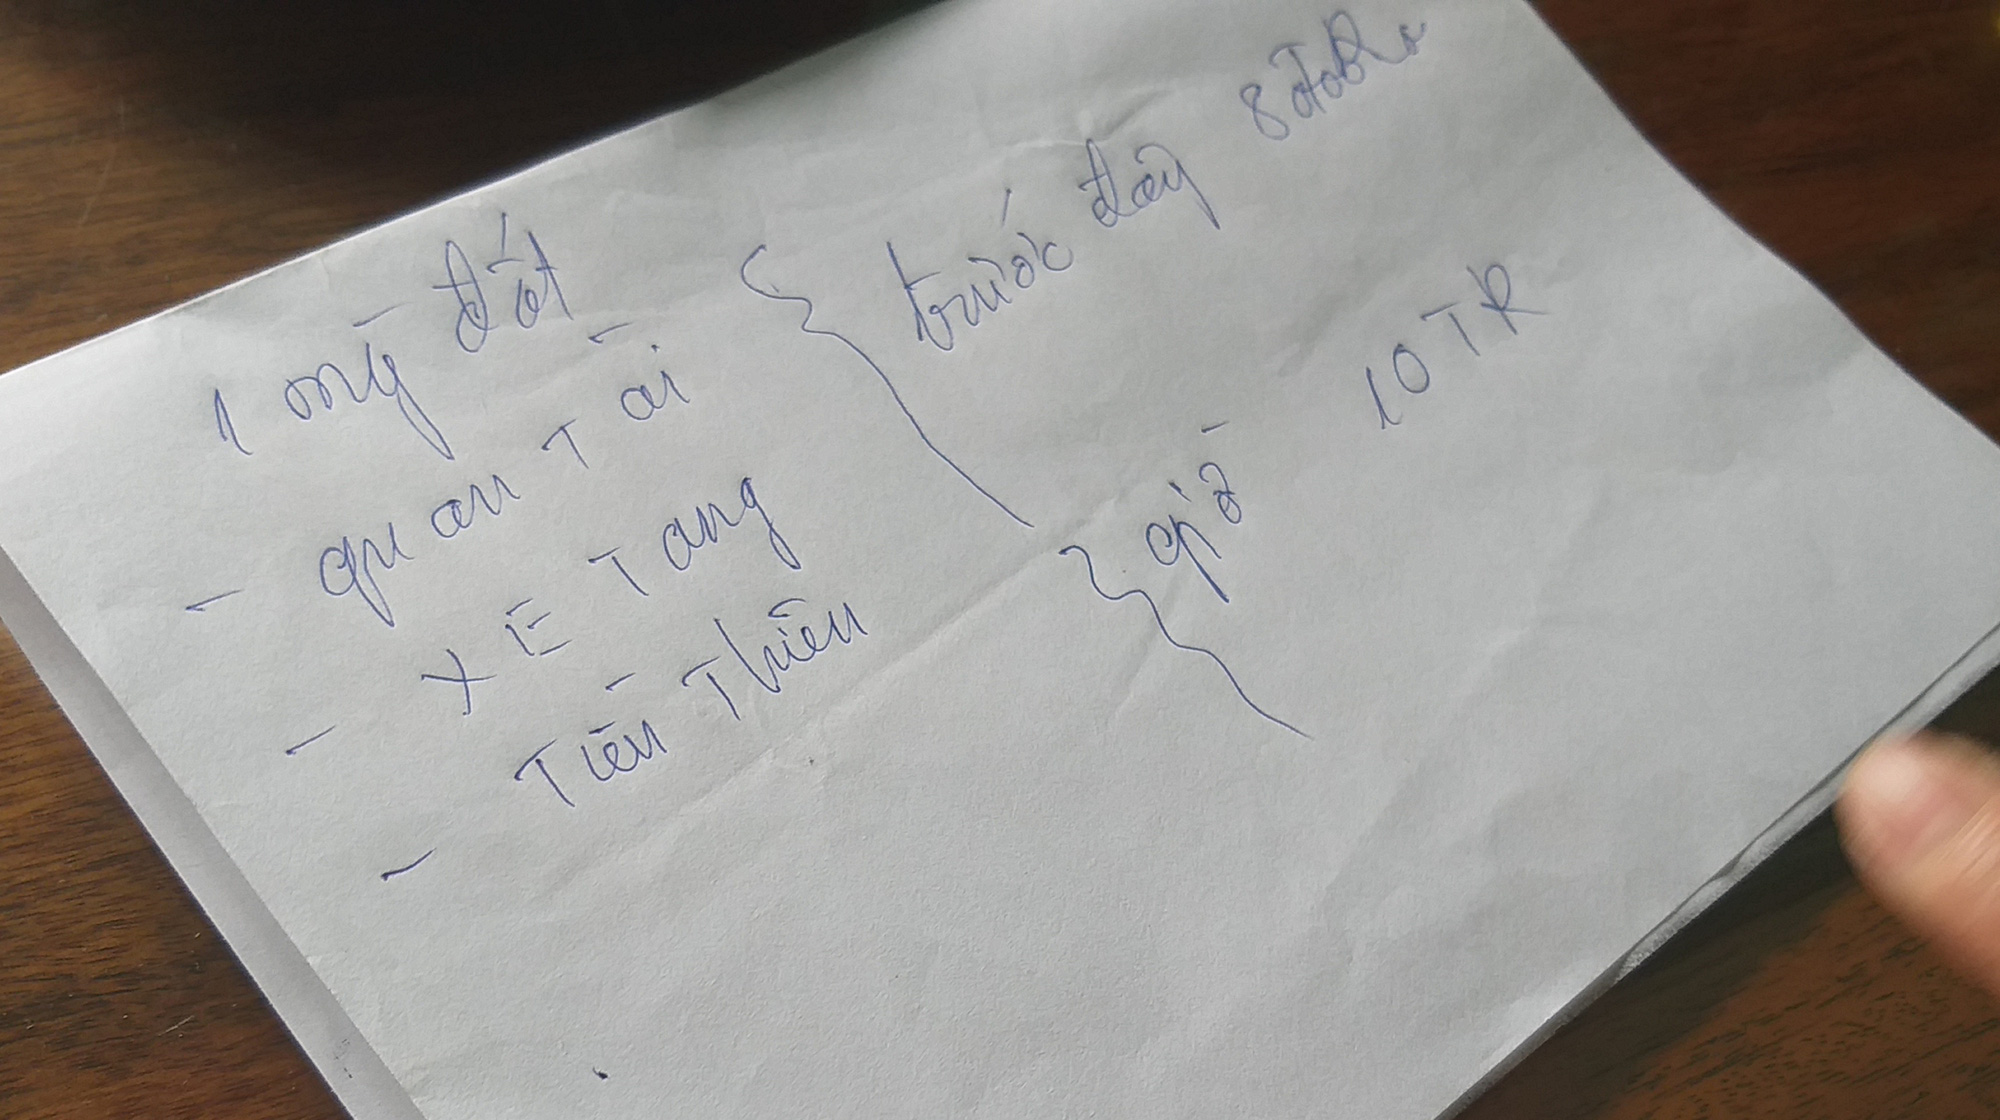 1 mỹ đất
- quan Tài
- XE Tang
- Tiền Thiền
trước đây 8
giờ 10 TR